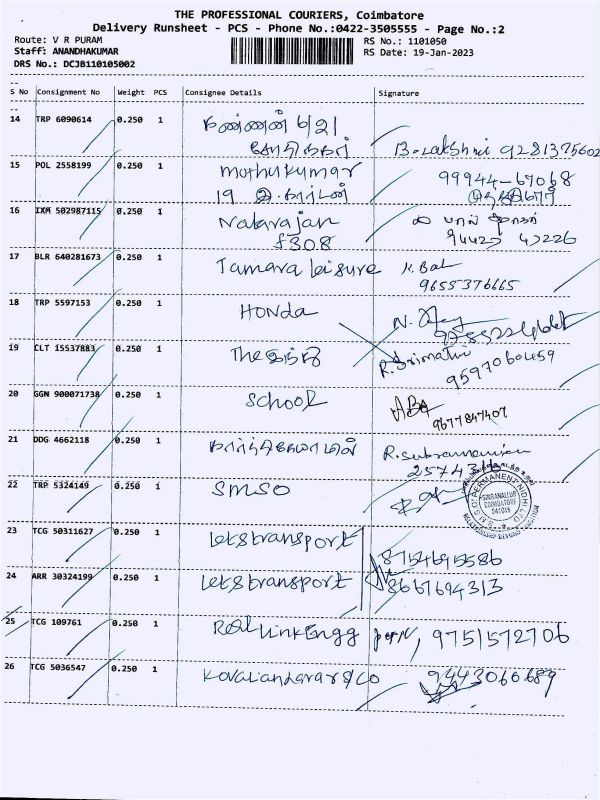 THE PROFESSIONAL COURIERS, Coimbatore
Delivery Runsheet - PCS - Phone No.:0422-3505555 - Page No.:2
Route: V R PURAM RS No.: 1101050
Staff: ANANDHAKUMAR RS Date: 19-Jan-2023
DRS No.: DCJB110105002
S No Consignment No Weight PCS Consignee Details Signature
14 TRP 6090614 0.250 1 கண்ணன் 6/21
B. Lakshmi 9281375602
15 POL 2558199 0.250 1 muthukumar 99944-67068
19
16 IXM 502987115 0.250 1 Natarajan
f308 94425 42226
17 BLR 640281673 0.250 1 Tamara leisure K. Bal
9655376665
18 TRP 5597153 0.250 1 HONda N.
19 CLT 15537883 0.250 1 The இந்து R. Srimathi
9597060459
20 GGN 900071738 0.250 1 school
9677847407
21 DDG 4662118 0.250 1 R. Subramanian
22 TRP 5324149 0.250 1 SMSO
PERMANENT NIDHI LTD
SINGANALLUR
COIMBATORE
641015
23 TCG 50311627 0.250 1 Letstransport 8754695586
24 ARR 30324199 0.250 1 Letstransport 8667694313
25 TCG 109761 0.250 1 Real Link Engg 9751572706
26 TCG 5036547 0.250 1 9443060689